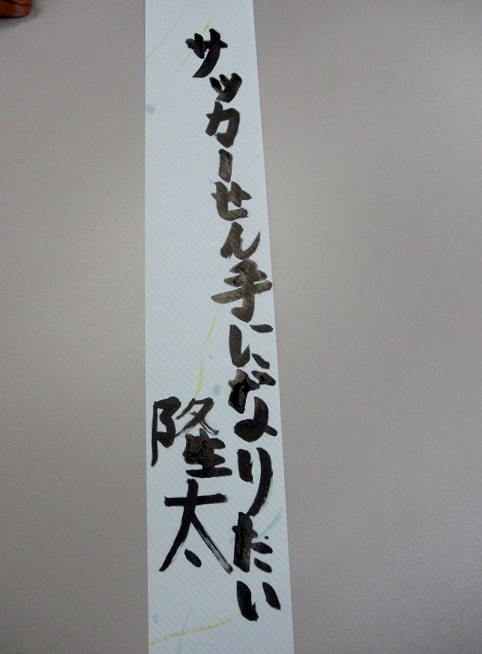 サッカーせん手になりたい
隆太